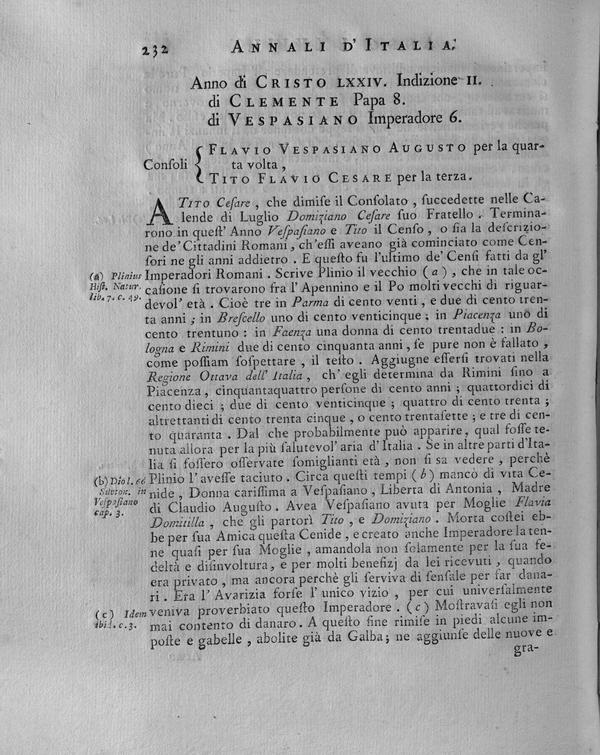 232 ANNALI D'ITALIA.
Anno di CRISTO LXXIV. Indizione II.
di CLEMENTE Papa 8.
di VESPASIANO Imperadore 6.
Consoli { FLAVIO VESPASIANO AUGUSTO per la quar-
ta volta,
TITO FLAVIO CESARE per la terza.
A TITO Cesare, che dimise il Consolato, succedette nelle Ca-
lende di Luglio Domiziano Cesare suo Fratello. Termina-
rono in quest' Anno Vespasiano e Tito il Censo, o sia la descrizio-
ne de' Cittadini Romani, ch'essi aveano già cominciato come Cen-
sori ne gli anni addietro. E questo fu l'ultimo de' Censi fatti da gl'
(a) Plinius Imperadori Romani. Scrive Plinio il vecchio (a), che in tale oc-
Hist. Natur. casione si trovarono fra l'Apennino e il Po molti vecchi di riguar-
lib. 7. c. 49. devol' età. Cioè tre in Parma di cento venti, e due di cento tren-
ta anni; in Brescello uno di cento venticinque; in Piacenza uno di
cento trentuno: in Faenza una donna di cento trentadue: in Bo-
logna e Rimini due di cento cinquanta anni, se pure non è fallato,
come possiam sospettare, il testo. Aggiugne essersi trovati nella
Regione Ottava dell' Italia, ch' egli determina da Rimini sino a
Piacenza, cinquantaquattro persone di cento anni; quattordici di
cento dieci; due di cento venticinque; quattro di cento trenta;
altrettanti di cento trenta cinque, o cento trentasette; e tre di cen-
to quaranta. Dal che probabilmente può apparire, qual fosse te-
nuta allora per la più salutevol' aria d'Italia. Se in altre parti d'Ita-
lia si fossero osservate somiglianti età, non si sa vedere, perchè
(b) Dio l. 66 Plinio l'avesse taciuto. Circa questi tempi (b) mancò di vita Ce-
Sueton. in nide, Donna carissima a Vespasiano, Liberta di Antonia, Madre
Vespasiano di Claudio Augusto. Avea Vespasiano avuta per Moglie Flavia
cap. 3. Domitilla, che gli partorì Tito, e Domiziano. Morta costei eb-
be per sua Amica questa Cenide, e creato anche Imperadore la ten-
ne quasi per sua Moglie, amandola non solamente per la sua fe-
deltà e disinvoltura, e per molti benefizj da lei ricevuti, quando
era privato, ma ancora perchè gli serviva di sensale per far dana-
ri. Era l'Avarizia forse l'unico vizio, per cui universalmente
(c) Idem veniva proverbiato questo Imperadore. (c) Mostravasi egli non
ibid. c. 3. mai contento di danaro. A questo fine rimise in piedi alcune im-
poste e gabelle, abolite già da Galba; ne aggiunse delle nuove e
gra-